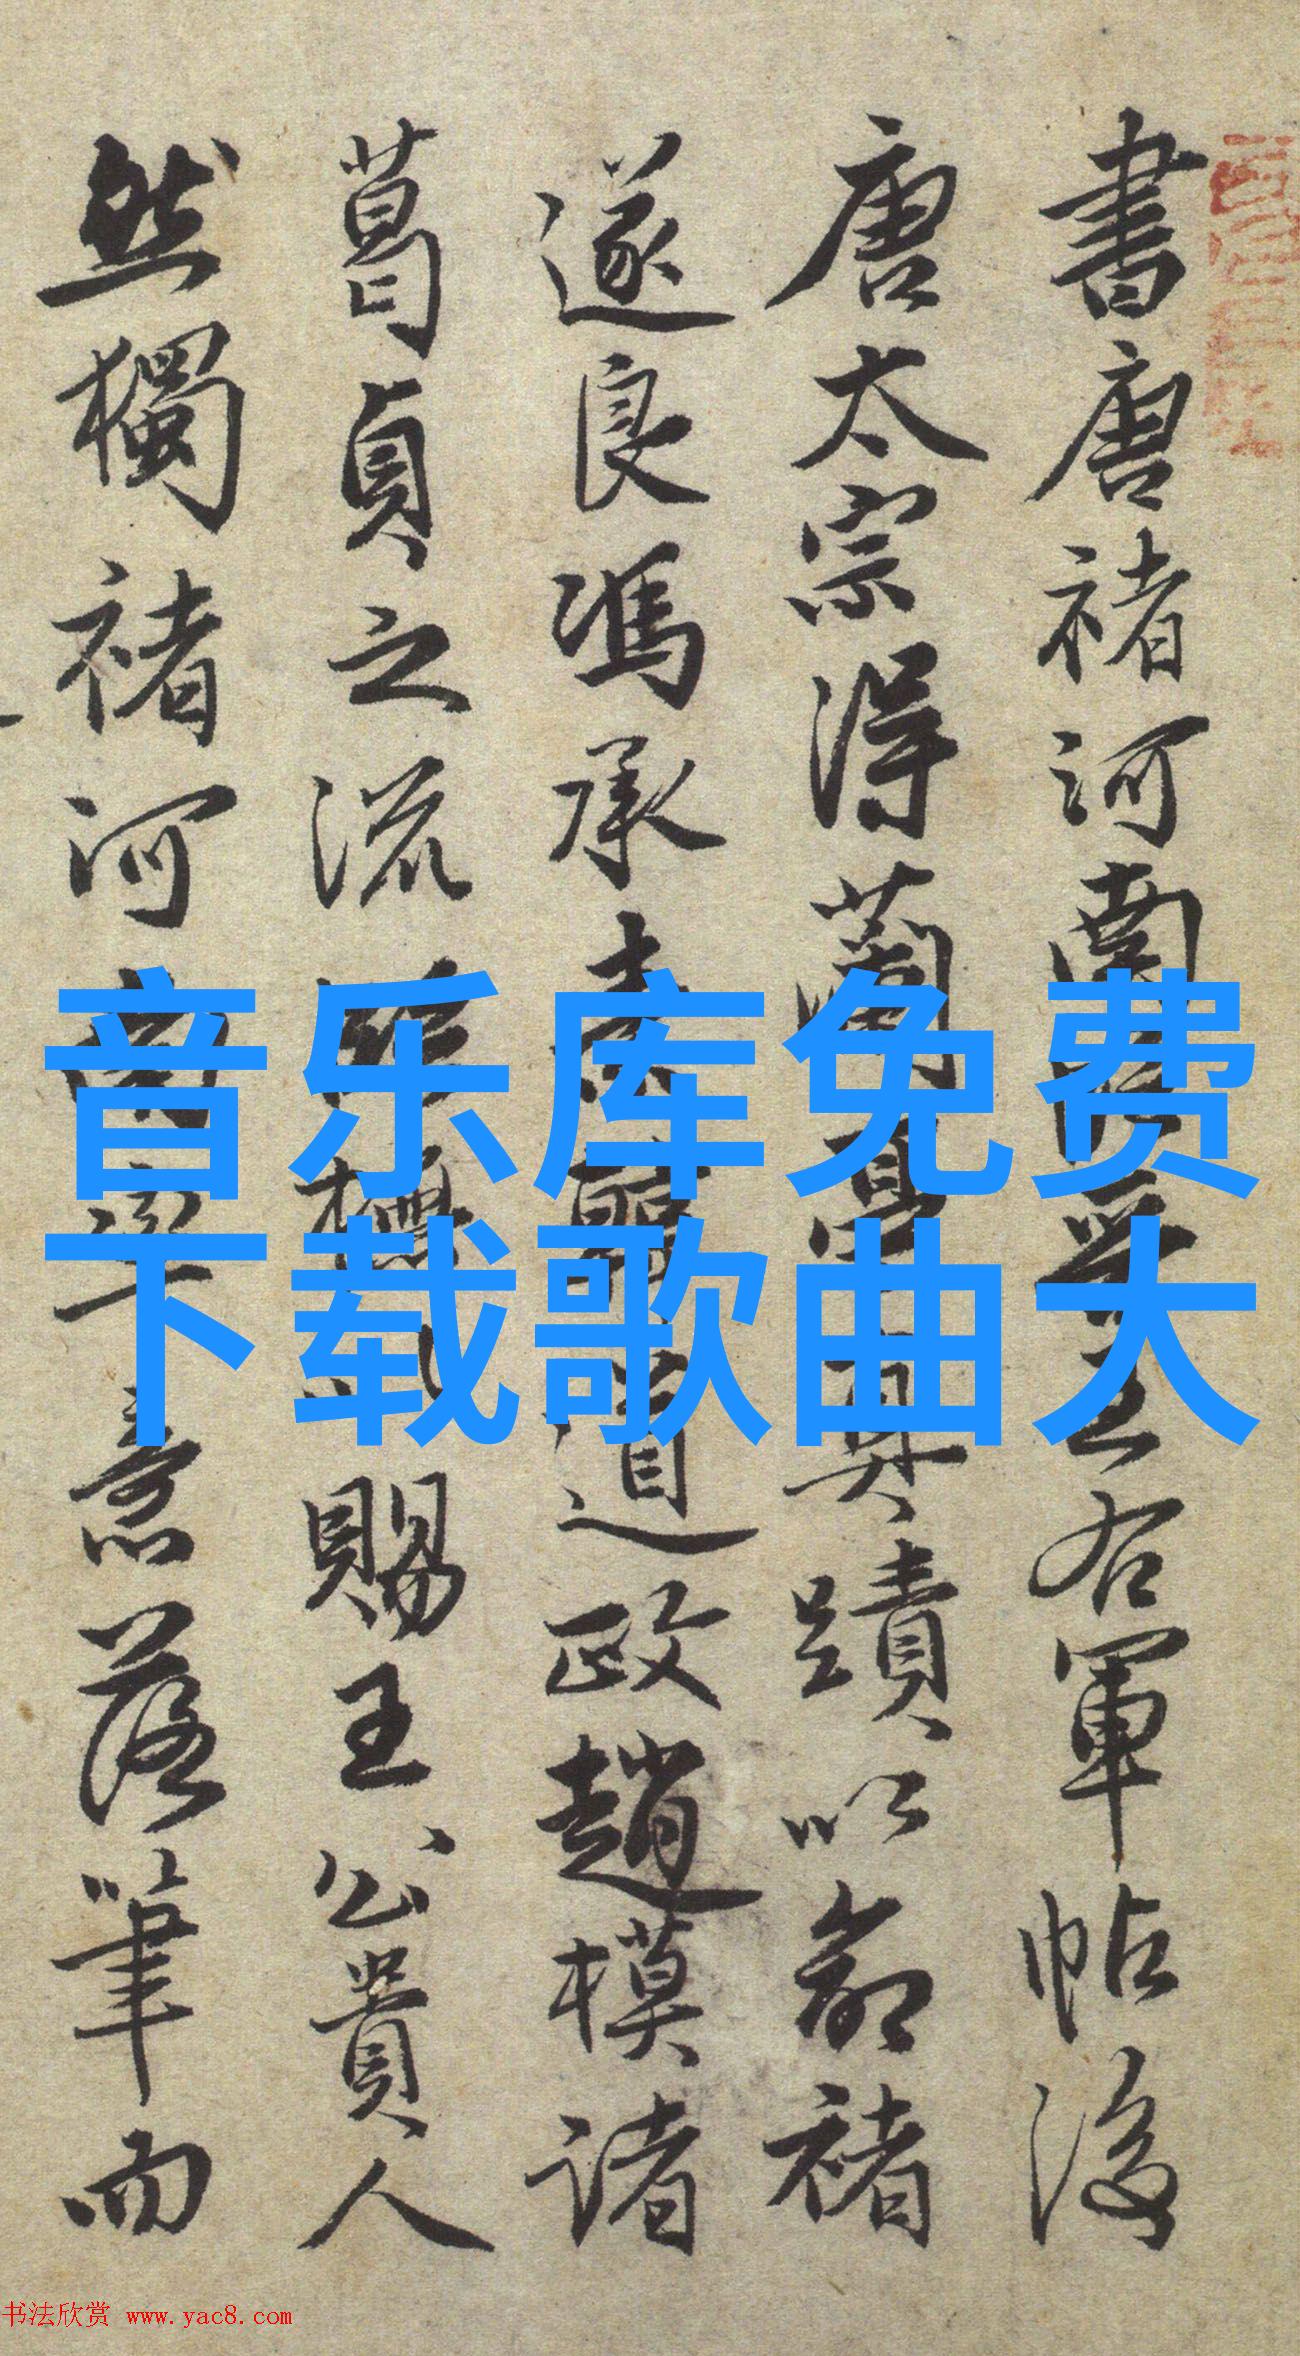 書唐褚河南臨王右軍帖後
唐太宗得蘭亭真蹟以命褚
遂良馮承素韓道政趙模諸
葛貞之流賜王公貴人
然獨褚河南意落筆而
音乐库免费
下载歌曲大
书法欣赏 www.yac8.com